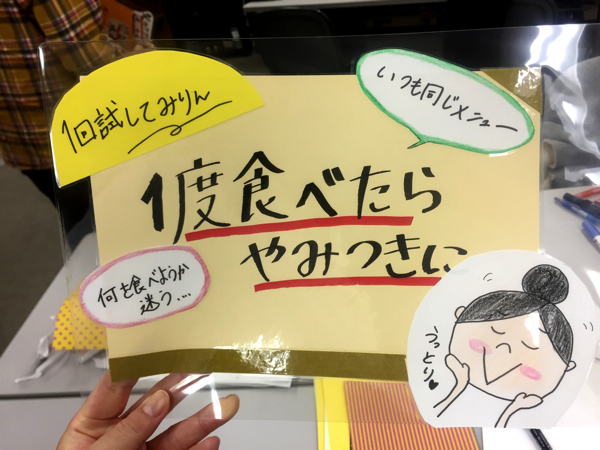 1回試してみりん
いつも同じメニュー
1度食べたら
やみつきに
何を食べようか
迷う...
うっとり♥